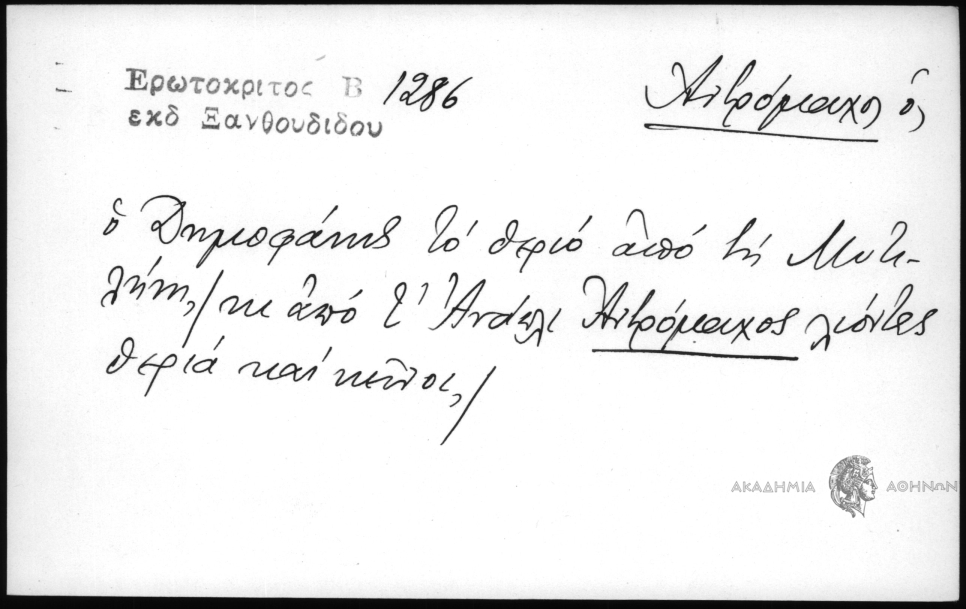 Ερωτοκριτος Β 1286
εκδ Ξανθουδιδου
Ἀντρόμαχος ὁ,
ὁ Δημοφάνης τὸ θεριό ἀπό τή Μυτι-
λήνη,/ κι ἀπό τ' Ἀνάπλι Ἀντρόμαχος λιόντες
θεριά καί κεῖνοι,/
ΑΚΑΔΗΜΙΑ ΑΘΗΝΩΝ